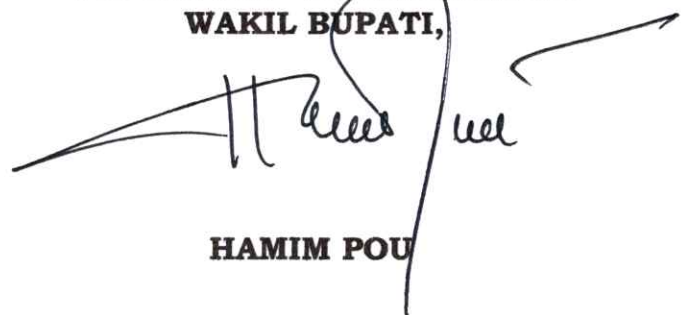 WAKIL BUPATI,
HAMIM POU